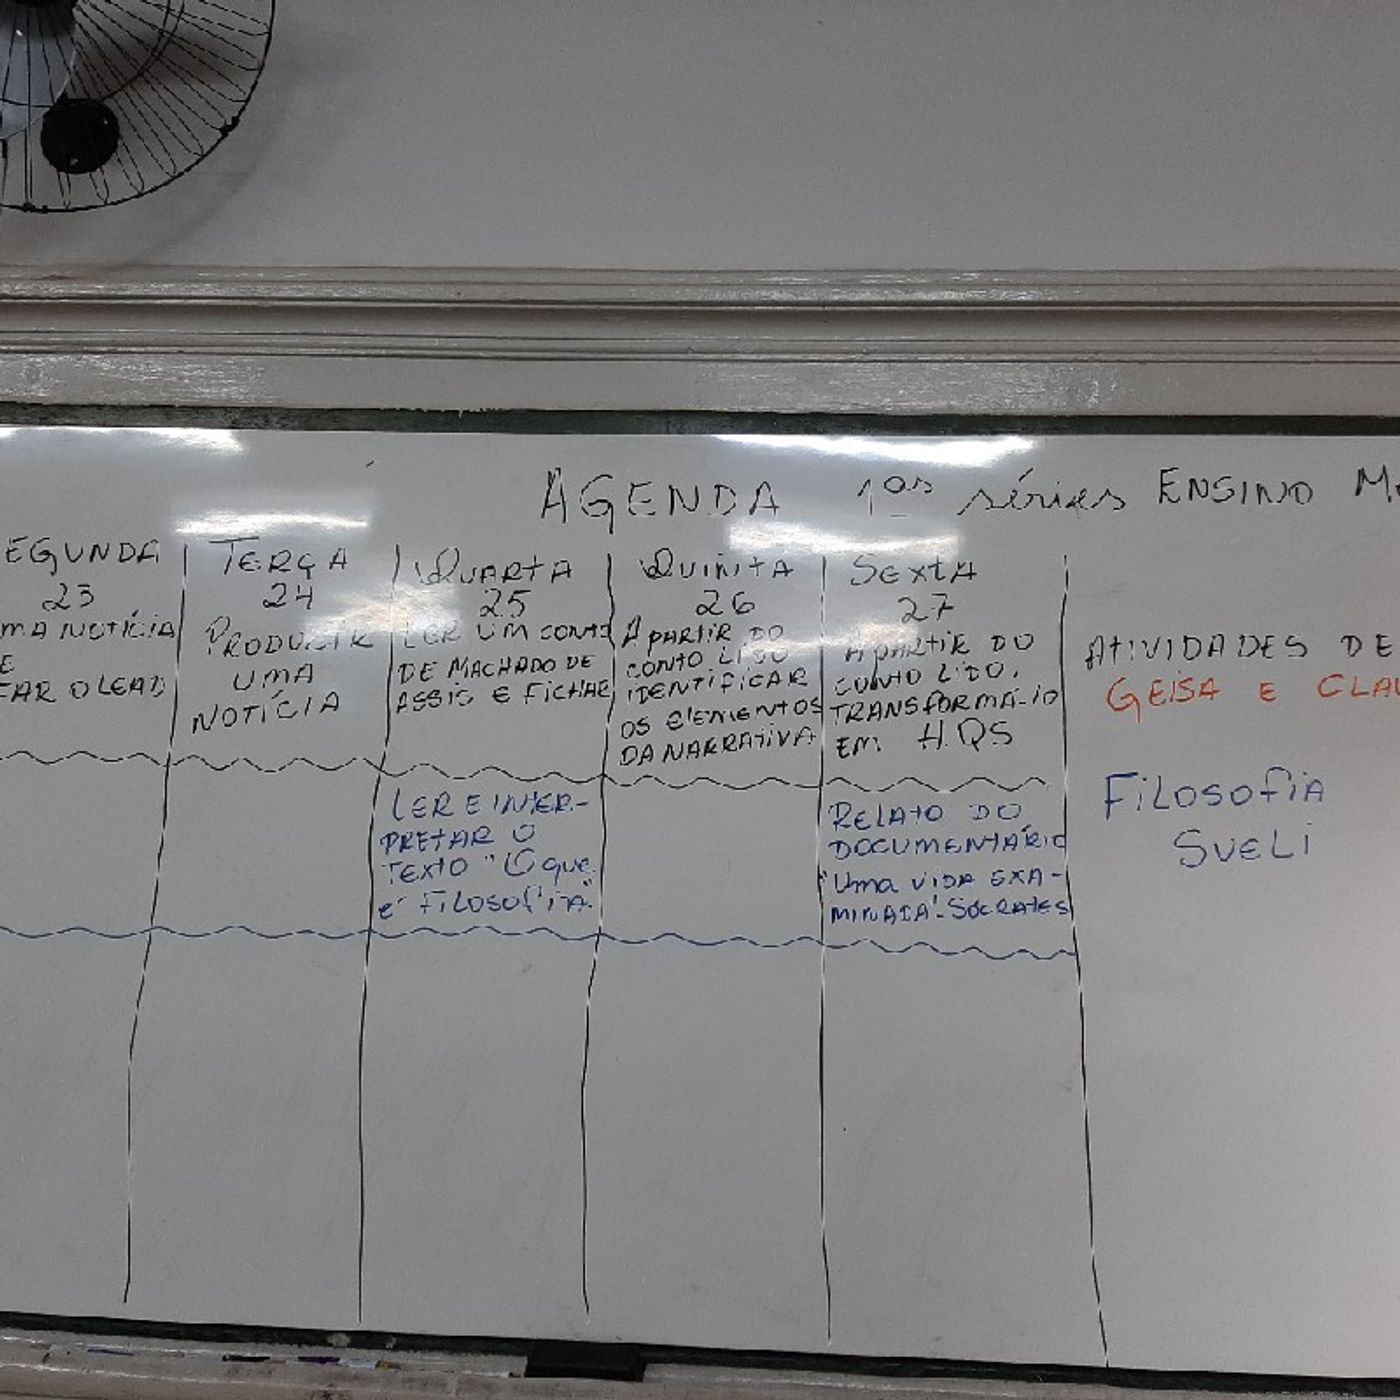 AGENDA 1ªs séries ENSINO M
EGUNDA
23
MA NOTÍCIA
E
FAR O LEAD
TERÇA
24
PRODUZIR
UMA
NOTÍCIA
QUARTA
25
LER UM CONTO
DE MACHADO DE
ASSIS E FICHAR
QUINTA
26
A PARTIR DO
CONTO LIDO
IDENTIFICAR
OS ELEMENTOS
DA NARRATIVA
SEXTA
27
A PARTIR DO
CONTO LIDO,
TRANSFORMÁ-IO
EM H.QS
ATIVIDADES DE
GEISA E CLAU
LER E INTER-
PRETAR O
TEXTO "O que
é FILOSOFIA"
RELATO DO
DOCUMENTÁRIO
"Uma VIDA EXA-
MINADA"- SÓCRATES
FILOSOFIA
SUELI